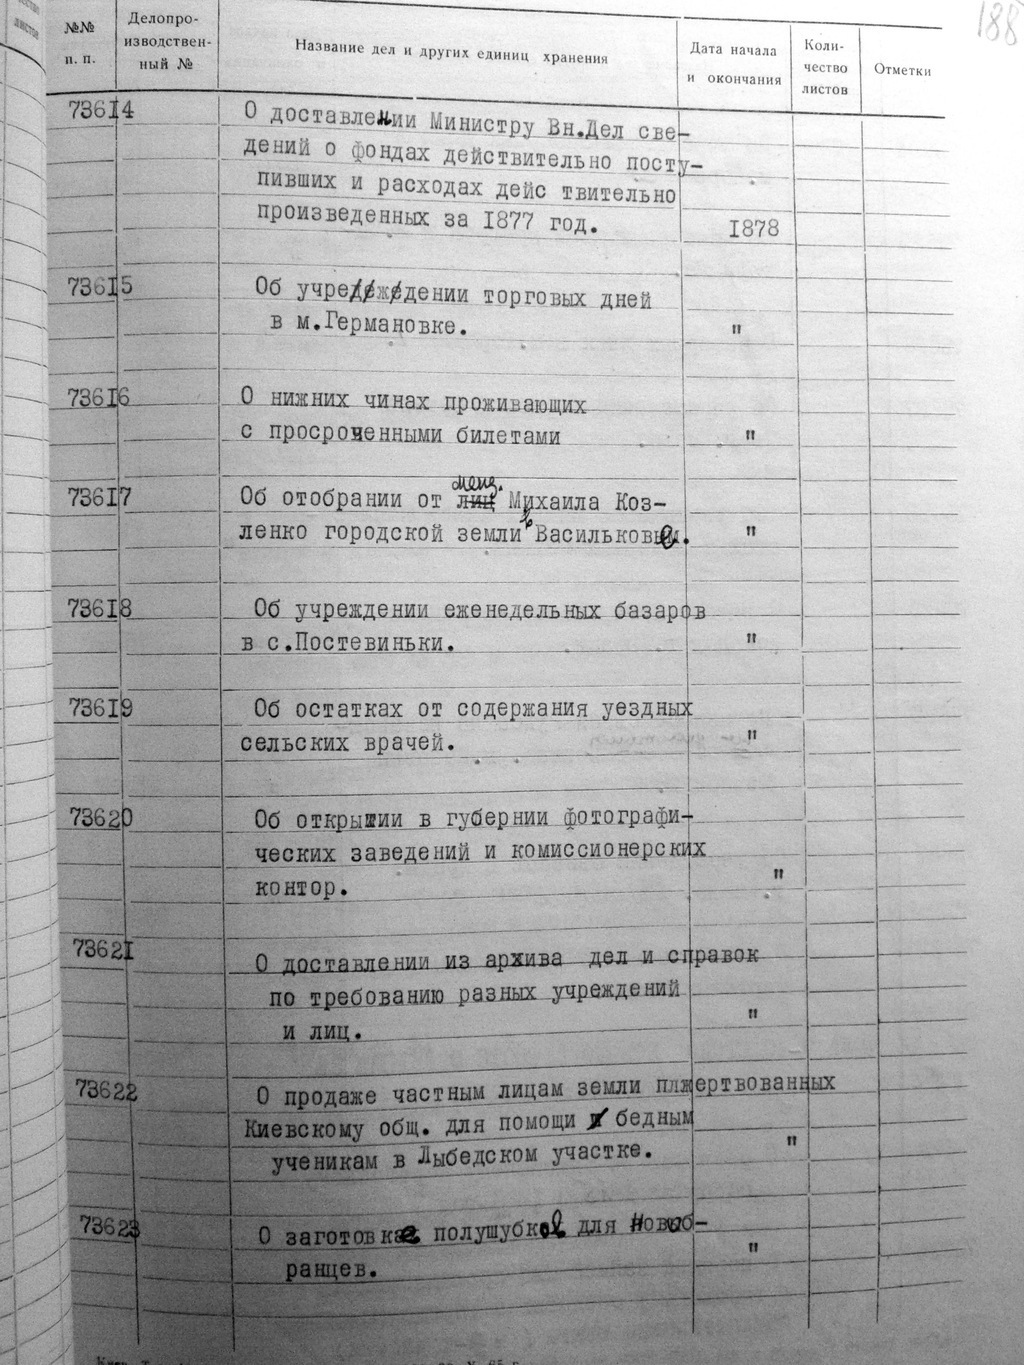 188
листов
№№ п. п.
Делопро-
изводствен-
ный №
Название дел и других единиц хранения
Дата начала
и окончания
Коли-
чество
листов
Отметки
73614
О доставлении Министру Вн.Дел све-
дений о фондах действительно посту-
пивших и расходах дейс твительно
произведенных за 1877 год.
1878
73615
Об учреждении торговых дней
в м.Германовке.
"
73616
О нижних чинах проживающих
с просроченными билетами
"
73617
мещ.
Об отобрании от лиц Михаила Коз-
ленко городской земли в Василькове.
"
73618
Об учреждении еженедельных базаров
в с.Постевиньки.
"
73619
Об остатках от содержания уездных
сельских врачей.
"
73620
Об открытии в губернии фотографи-
ческих заведений и комиссионерских
контор.
"
73621
О доставлении из архива дел и справок
по требованию разных учреждений
и лиц.
"
73622
О продаже частным лицам земли плжертвованных
Киевскому общ. для помощи бедным
ученикам в Лыбедском участке.
"
73623
О заготовке полушубков для Новоб-
ранцев.
"